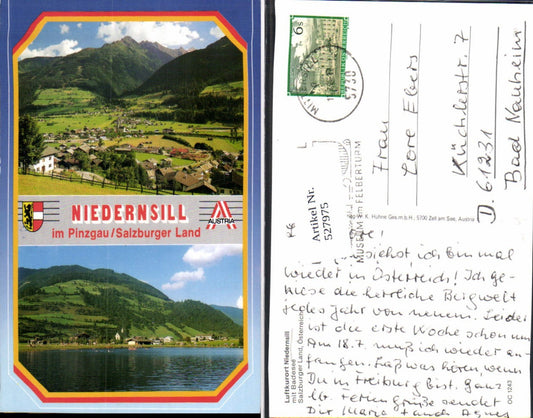 NIEDERNSILL
im Pinzgau/Salzburger Land
AUSTRIA
6 S
5730
MUSEUM im FELBERTURM
Artikel Nr.
527975
Frau
Lore Ebers
Küchlerstr. 7
D. 61231
Bad Nauheim
K. Hühne Ges.m.b.H., 5700 Zell am See, Austria
siehst, ich bin mal
wieder in Österreich! Ich ge-
niese die herrliche Bergwelt
jedes Jahr von neuem. Leider
ist die erste Woche schon um
Am 18.7. muß ich wieder an-
fangen. Laß was hören, wenn
Du in Freiburg bist. Ganz
lb. Feriengrüße sendet
Dir Maria
Luftkurort Niedernsill
mit Badesee
Salzburger Land, Österreich
OC 1243